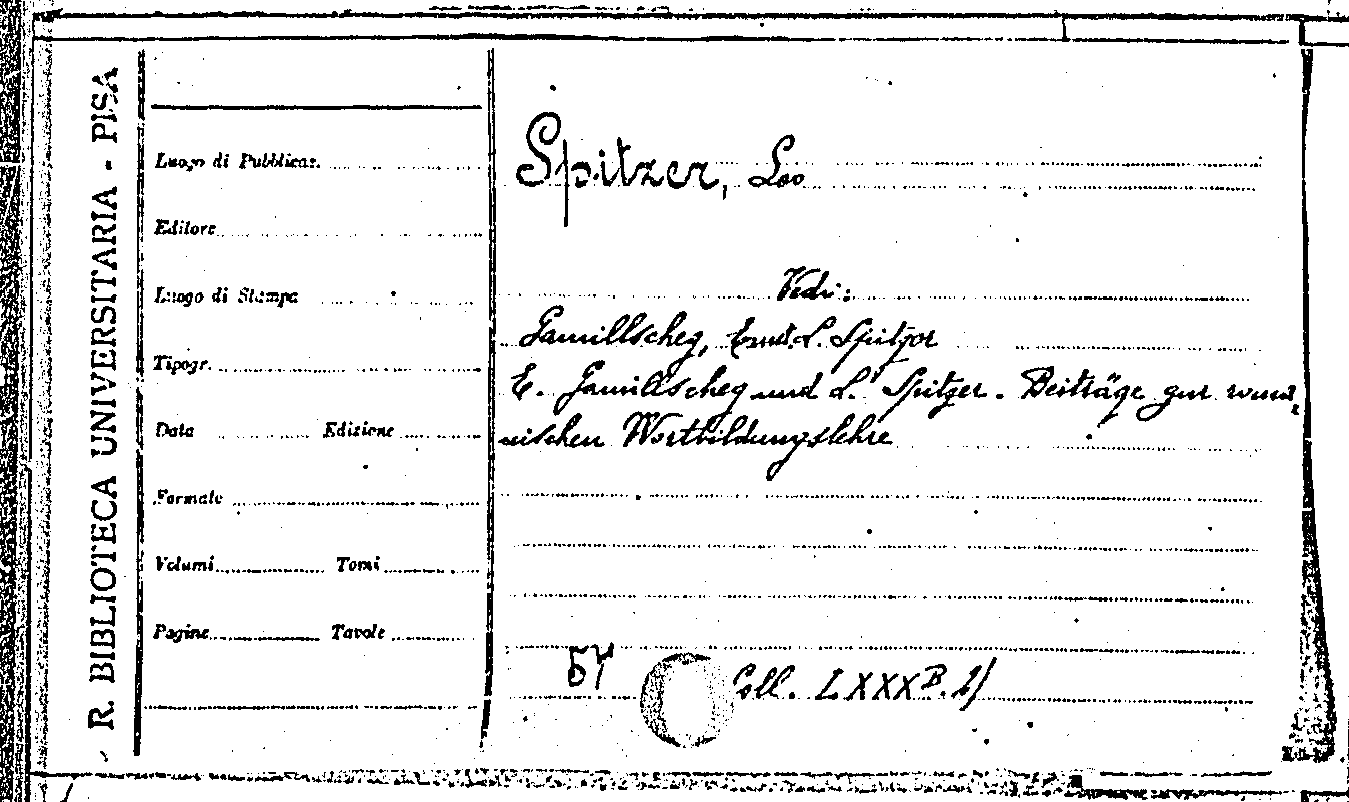 R. BIBLIOTECA UNIVERSITARIA - PISA
Luogo di Pubblicaz.
Editore
Luogo di Stampa
Tipogr.
Data Edizione
Formato
Volumi Tomi
Pagine Tavole
Spitzer, Leo
Vedi:
Gamillscheg, Ernst. L. Spitzer
E. Gamillscheg und L. Spitzer. Beiträge zur roma,
nischen Wortbildungslehre
57 Coll. LXXX B. 2/